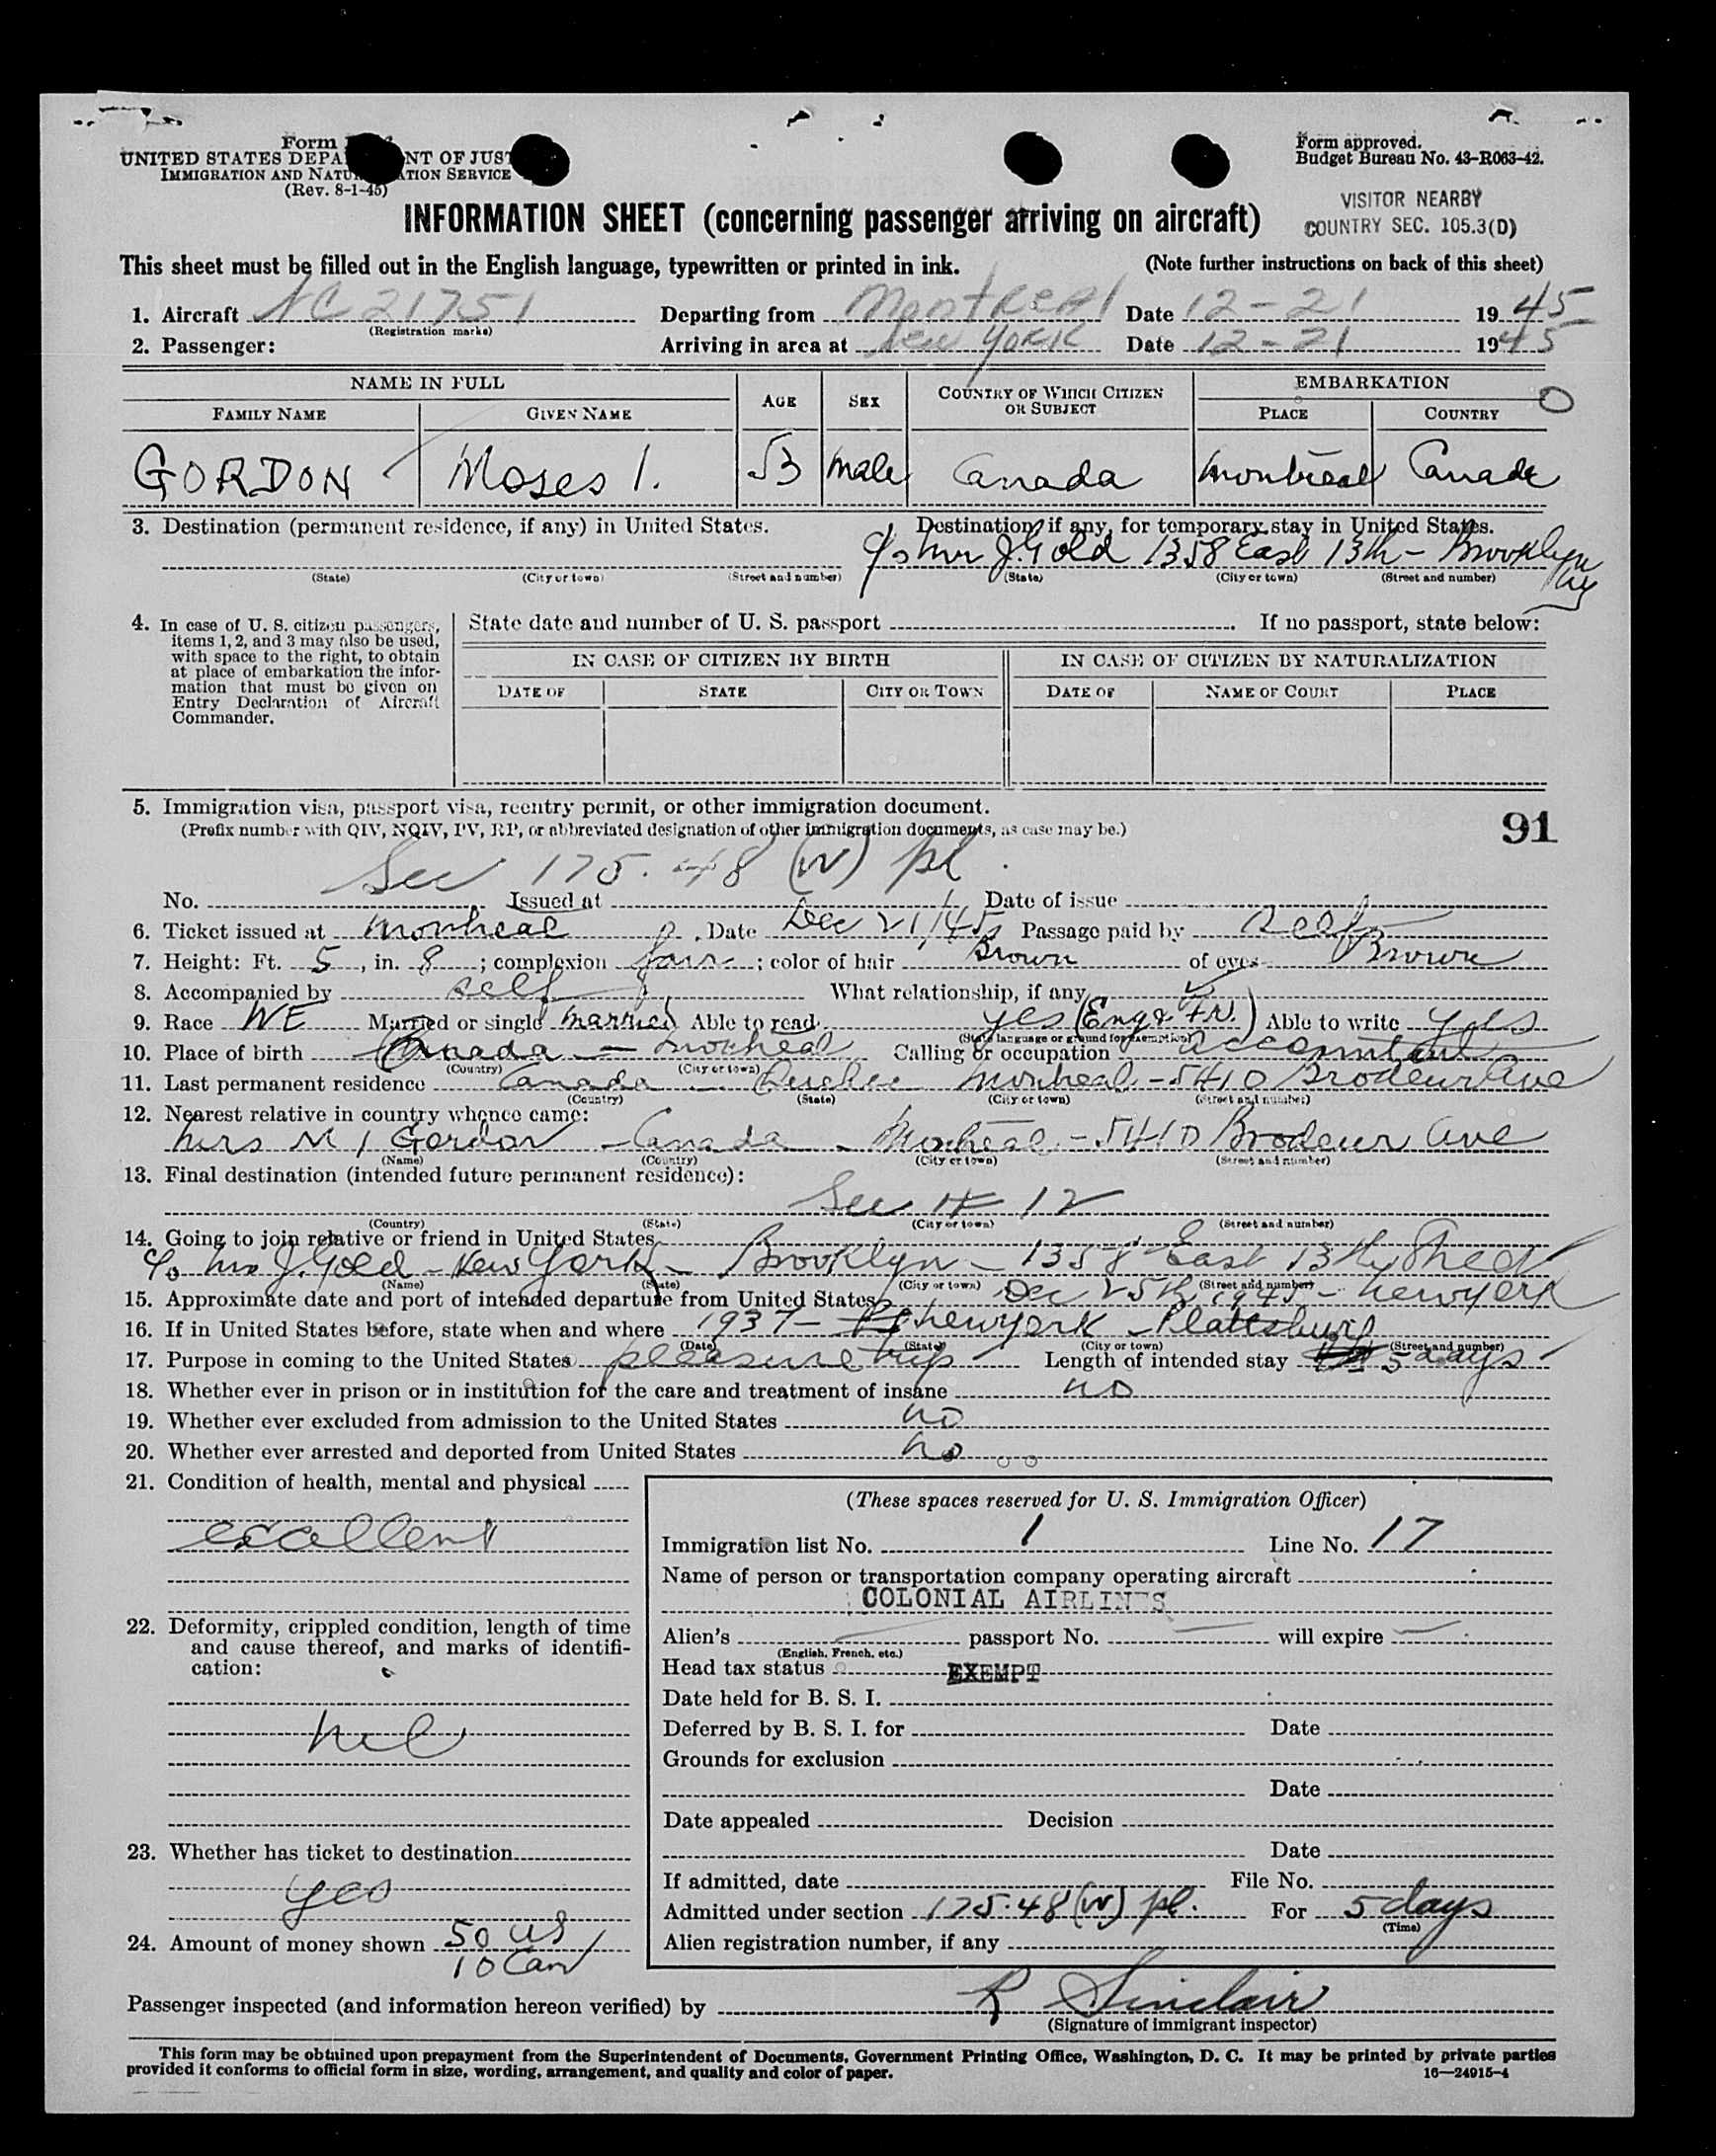 Form I
UNITED STATES DEPA NT OF JUST
IMMIGRATION AND NATU ATION SERVICE
(Rev. 8-1-45)
Form approved.
Budget Bureau No. 43-R063-42.
VISITOR NEARBY
COUNTRY SEC. 105.3(D)
INFORMATION SHEET (concerning passenger arriving on aircraft)
This sheet must be filled out in the English language, typewritten or printed in ink. (Note further instructions on back of this sheet)
1. Aircraft NC 21751 Departing from Montreal Date 12-21 1945
(Registration marks)
2. Passenger: Arriving in area at New York Date 12-21 1945
NAME IN FULL AGE SEX COUNTRY OF WHICH CITIZEN OR SUBJECT EMBARKATION
FAMILY NAME GIVEN NAME PLACE COUNTRY
GORDON Moses I. 53 male Canada Montreal Canada
3. Destination (permanent residence, if any) in United States. Destination, if any, for temporary stay in United States.
c/o J. Gold 1358 East 13th - Brooklyn NY
(State) (City or town) (Street and number) (State) (City or town) (Street and number)
4. In case of U. S. citizen passengers, items 1, 2, and 3 may also be used, with space to the right, to obtain at place of embarkation the information that must be given on Entry Declaration of Aircraft Commander.
State date and number of U. S. passport If no passport, state below:
IN CASE OF CITIZEN BY BIRTH IN CASE OF CITIZEN BY NATURALIZATION
DATE OF STATE CITY OR TOWN DATE OF NAME OF COURT PLACE
5. Immigration visa, passport visa, reentry permit, or other immigration document.
(Prefix number with QIV, NQIV, PV, RP, or abbreviated designation of other immigration documents, as case may be.)
91
Sec 175.48 (W) pl.
No. Issued at Date of issue
6. Ticket issued at Montreal . Date Dec 21/45 Passage paid by Self
7. Height: Ft. 5, in. 8; complexion fair; color of hair Brown of eyes Brown
8. Accompanied by self What relationship, if any
9. Race WE Married or single married Able to read yes (Eng & Fr.) Able to write yes
(State language or ground for exemption)
10. Place of birth Canada - Montreal Calling or occupation accountant
(Country) (City or town)
11. Last permanent residence Canada - Quebec Montreal - 5410 Brodeur Ave
(Country) (State) (City or town) (Street and number)
12. Nearest relative in country whence came:
Mrs M I Gordon - Canada - Montreal - 5410 Brodeur Ave
(Name) (Country) (City or town) (Street and number)
13. Final destination (intended future permanent residence):
See # 12
(Country) (State) (City or town) (Street and number)
14. Going to join relative or friend in United States
c/o J. Gold - New York - Brooklyn - 1358 East 13th Street
(Name) (State) (City or town) (Street and number)
15. Approximate date and port of intended departure from United States Dec 25th 1945 - New York
16. If in United States before, state when and where 1937 - New York - Plattsburg
(Date) (State) (City or town) (Street and number)
17. Purpose in coming to the United States pleasure trip Length of intended stay 5 days
18. Whether ever in prison or in institution for the care and treatment of insane no
19. Whether ever excluded from admission to the United States no
20. Whether ever arrested and deported from United States no
21. Condition of health, mental and physical
excellent
22. Deformity, crippled condition, length of time
and cause thereof, and marks of identifi-
cation:
nil
23. Whether has ticket to destination
yes
24. Amount of money shown 50 US
10 Can
(These spaces reserved for U. S. Immigration Officer)
Immigration list No. 1 Line No. 17
Name of person or transportation company operating aircraft
COLONIAL AIRLINES
Alien's passport No. will expire
(English, French, etc.)
Head tax status EXEMPT
Date held for B. S. I.
Deferred by B. S. I. for Date
Grounds for exclusion
Date
Date appealed Decision
Date
If admitted, date File No.
Admitted under section 175.48 (W) pl. For 5 days
(Time)
Alien registration number, if any
Passenger inspected (and information hereon verified) by R Sinclair
(Signature of immigrant inspector)
This form may be obtained upon prepayment from the Superintendent of Documents, Government Printing Office, Washington, D. C. It may be printed by private parties
provided it conforms to official form in size, wording, arrangement, and quality and color of paper. 16—24915-4